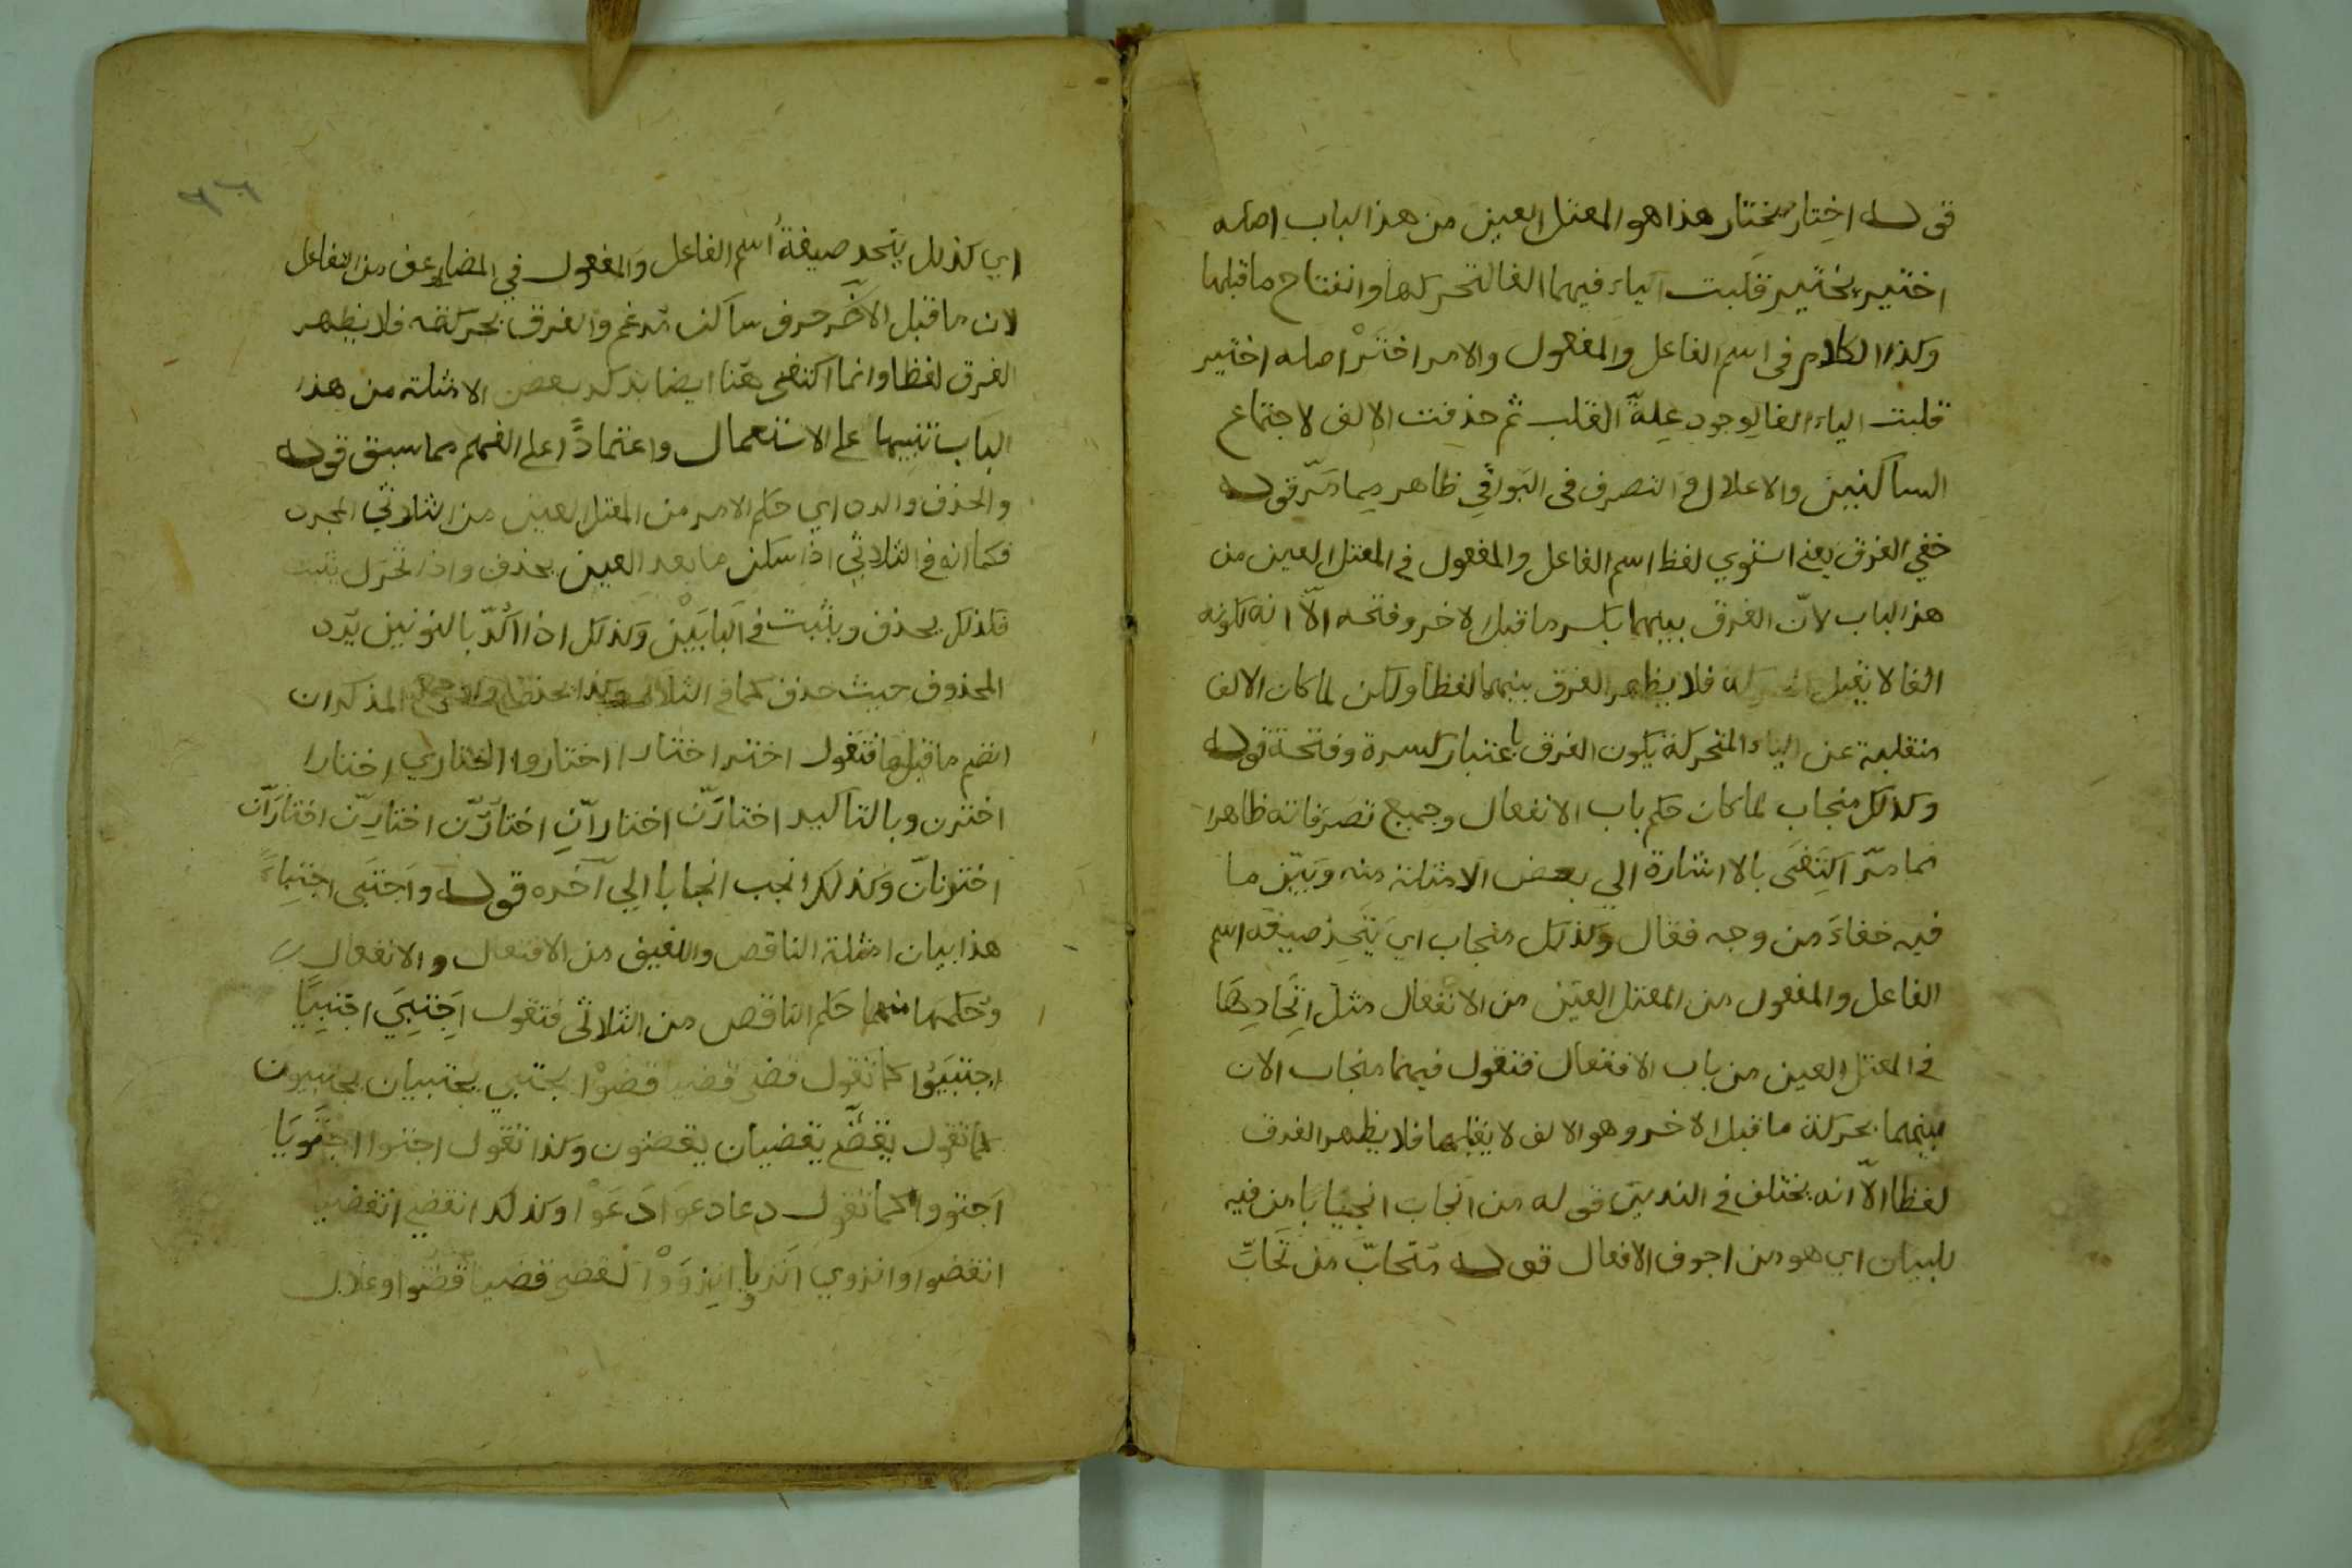 قوله اختار يختار هذا هو المعتل العين من هذا الباب اصله
اختير يختير قلبت الياء فيهما الفا لتحركها وانفتاح ما قبلها
وكذا الكلام فى اسم الفاعل والمفعول والامر اخترْ اصله اختير
قلبت الياء الفا لوجود علة القلب ثم حذفت الالف لاجتماع
الساكنين والاعلال والتصرف فى البواقي ظاهر مما مرّ قوله
خفي الفرق يعني استوي لفظ اسم الفاعل والمفعول في المعتل العين من
هذا الباب لانّ الفرق بينهما بكسر ما قبل الاخر وفتحه الّا انه لكونه
الفا لا يقبل الحركة فلا يظهر الفرق بينهما لفظا ولكن لما كان الالف
منقلبة عن الياء المتحركة يكون الفرق باعتبار كسرة وفتحة قوله
وكذلك منجاب لما كان حكم باب الانفعال وجميع تصرفاته ظاهرا
مما مرّ اكتفى بالاشارة الي بعض الامثلة منه وبيّن ما
فيه خفاء من وجه فقال وكذلك منجاب اي يتحد صيغة اسم
الفاعل والمفعول من المعتل العين من الانفعال مثل اتحادها
في المعتل العين من باب الافتعال فتقول فيهما منجاب الان
بينهما بحركة ما قبل الاخر وهو الالف لا يقبلها فلا يظهر الفرق
لفظا الّا انه يختلف في التقدير قوله من انجاب انجيابا من فيه
للبيان اي هو من اجوف الافعال قوله متحابّ من تحابّ
٩٦
اي كذلك يتحد صيغة اسم الفاعل والمفعول في المضاعف من التفاعل
لان ما قبل الاخر حرف ساكن مدغم والفرق بحركته فلا يظهر
الفرق لفظا وانما اكتفى هنا ايضا بذكر بعض الامثلة من هذا
الباب تنبيها على الاستعمال واعتمادًا على الفهم مما سبق قوله
والحذف والرد اي حكم الامر من المعتل العين من الثلاثي المجرد
فكما انه في الثلاثي اذا سكن ما بعد العين يحذف واذا تحرك يثبت
فلذلك يحذف ويثبت في البابين وكذلك اذا اكّد بالنونين يرد
المحذوف حيث حذف كما في الثلاثي وكذا المذكران
انضم ما قبلها فتقول اختر اختارا اختاروا اختاري اختارا
اخترن وبالتاكيد اختارَنّ اختارانّ اختارُنّ اختارِنّ اختارانّ
اخترنانّ وكذلك انجب انجابا الي آخره قوله واجتبى اجتباءً
هذا بيان امثلة الناقص واللفيف من الافتعال والانفعال
وحكمها منهما حكم الناقص من الثلاثي فتقول اجتبي اجتبيا
اجتبيوا كما تقول قضى قضيا قضوْا يجتبي يجتبيان يجتبيون
كما تقول يقضي يقضيان يقضون وكذا تقول اجتوا اجتويا
اجتووا كما تقول دعا دعوا دعَوْا وكذلك انقضي انقضيا
انقضوا وانزوي انزويا انزوَوْا كقضى قضيا قضوا وعلال